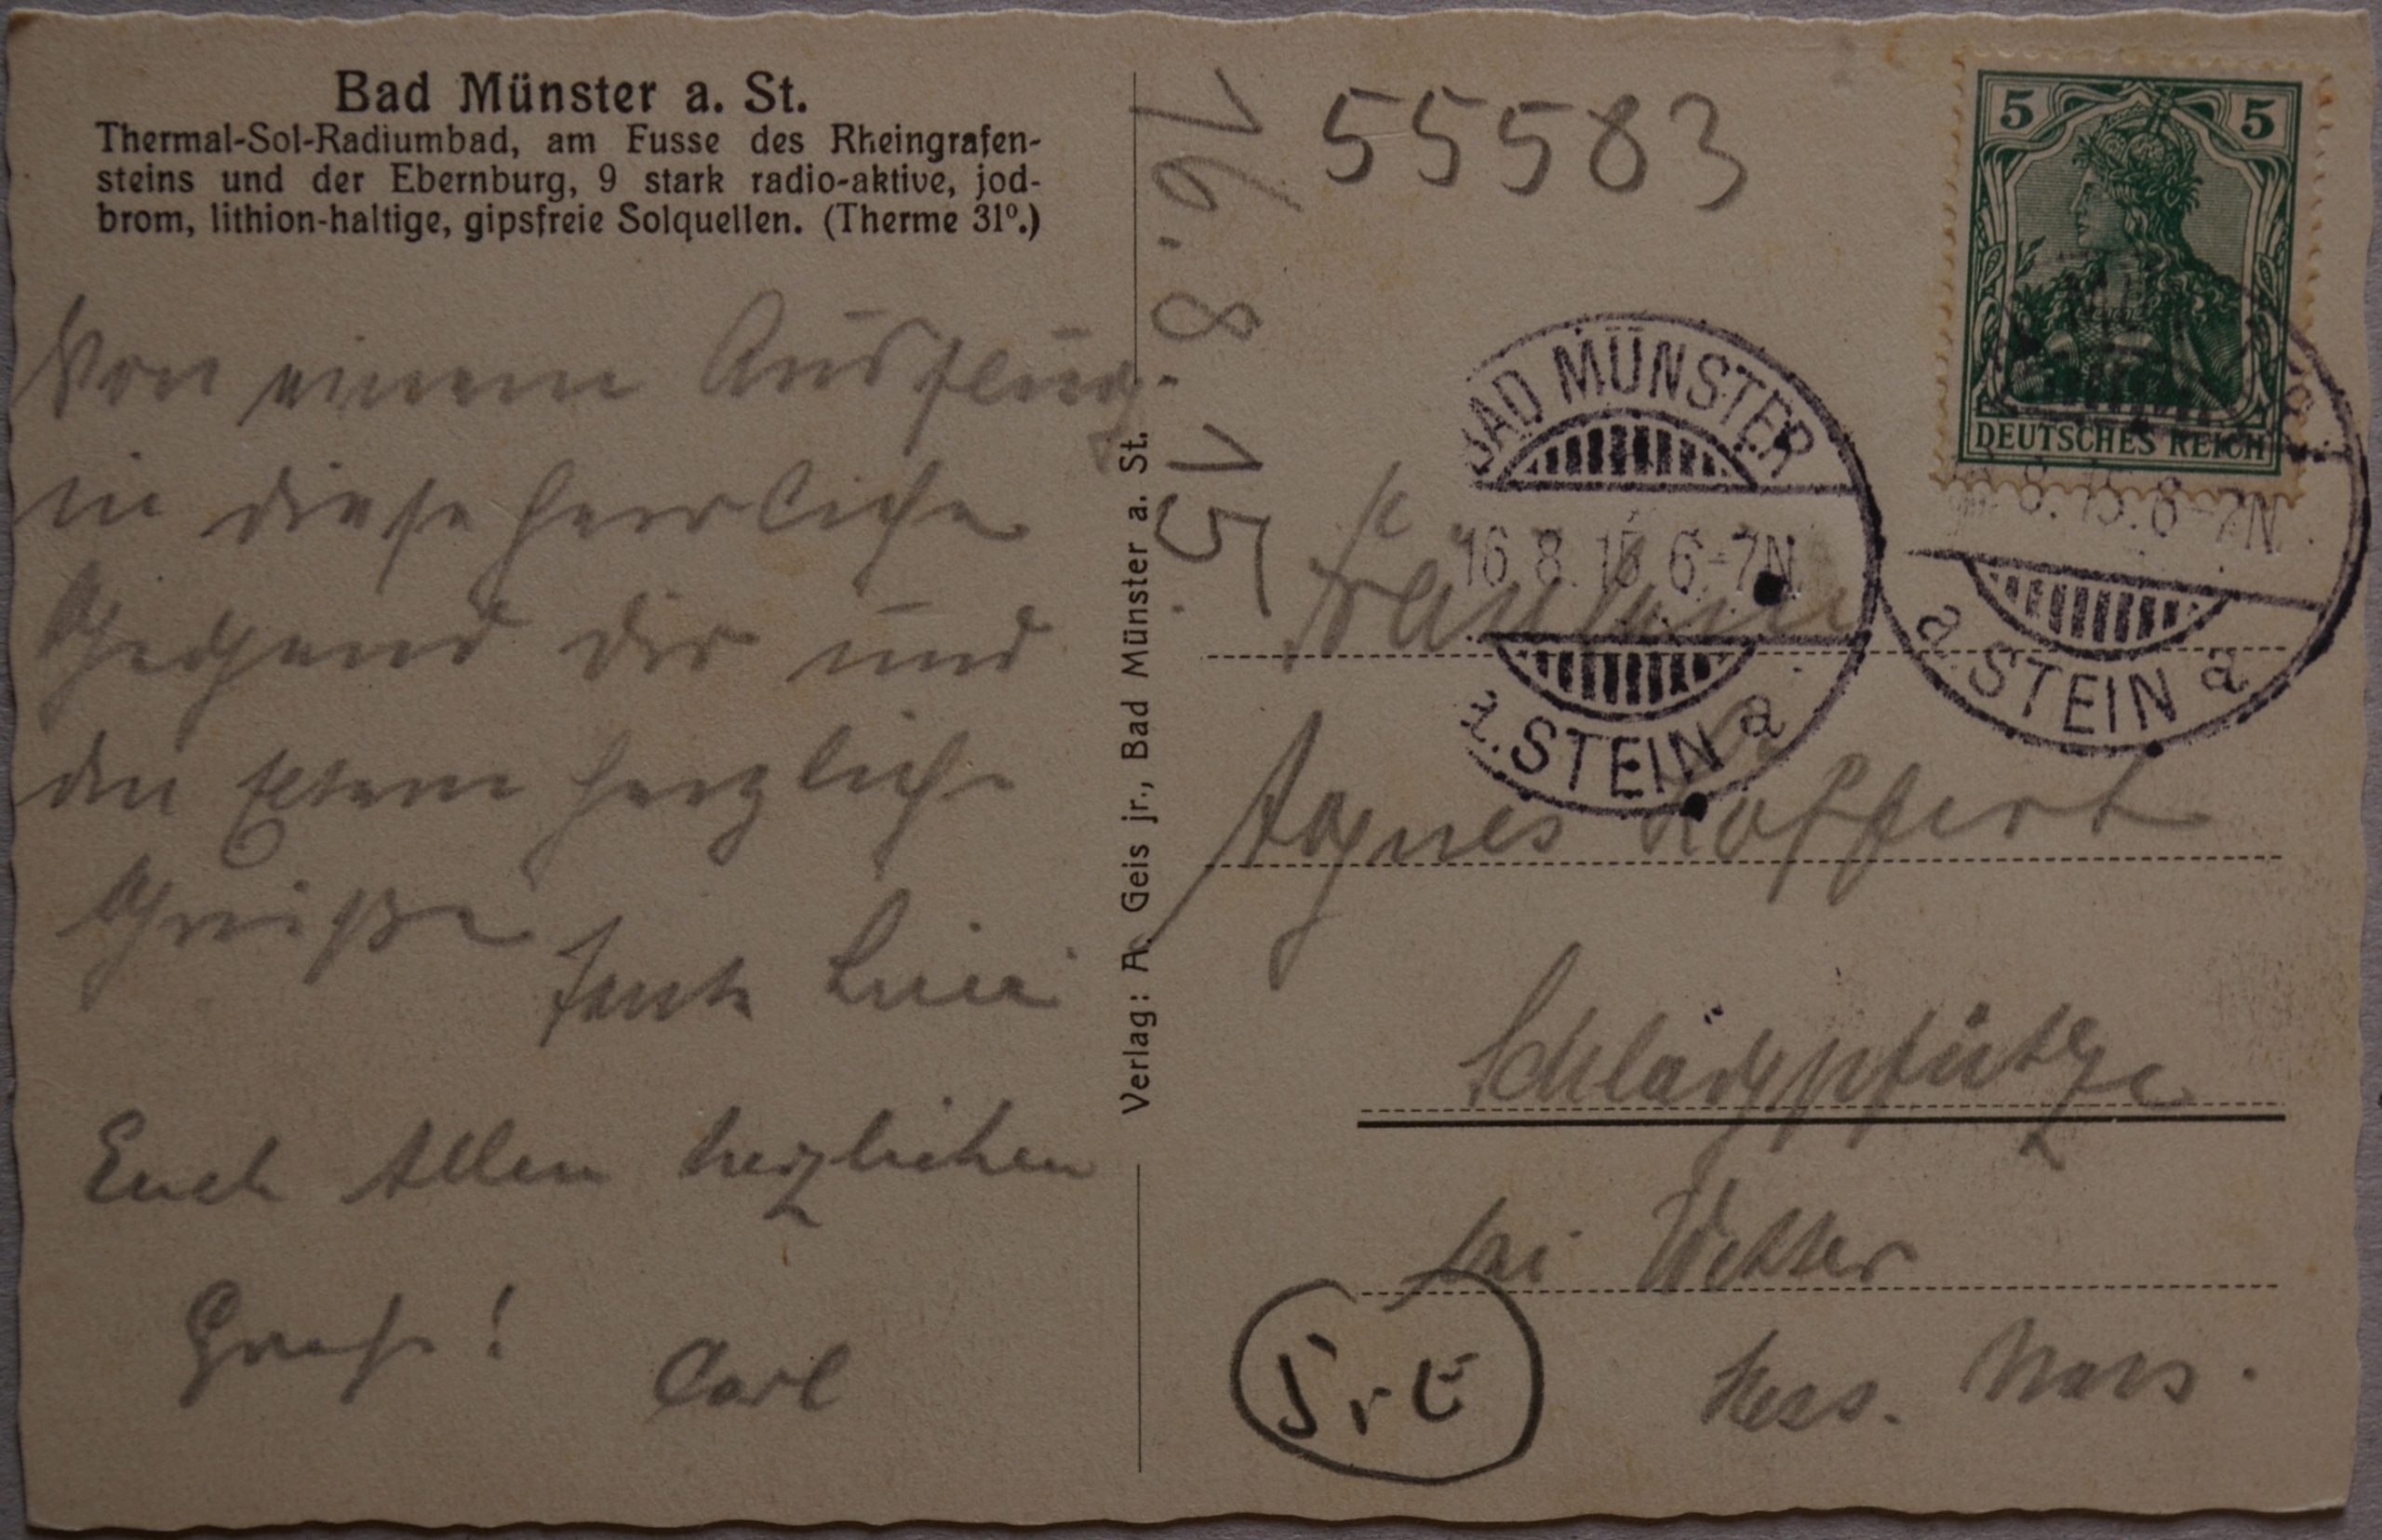 Bad Münster a. St.
Thermal-Sol-Radiumbad, am Fusse des Rheingrafen-
steins und der Ebernburg, 9 stark radio-aktive, jod-
brom, lithion-haltige, gipsfreie Solquellen. (Therme 31º.)
Von einem Ausflug
in diese herrliche
Gegend dir und
den Eltern herzliche
Grüße
Tante
Euch Allen herzlichen
Gruß!
Carl
Verlag: A. Geis jr., Bad Münster a. St.
16.8.15.
55583
5 5
DEUTSCHES REICH
BAD MÜNSTER
16.8.15 6-7N
a. STEIN a
8.15.8-9N
a. STEIN a
Fräulein
Agnes
Schlagpfütze
bei Wetter
Hess. Nass.